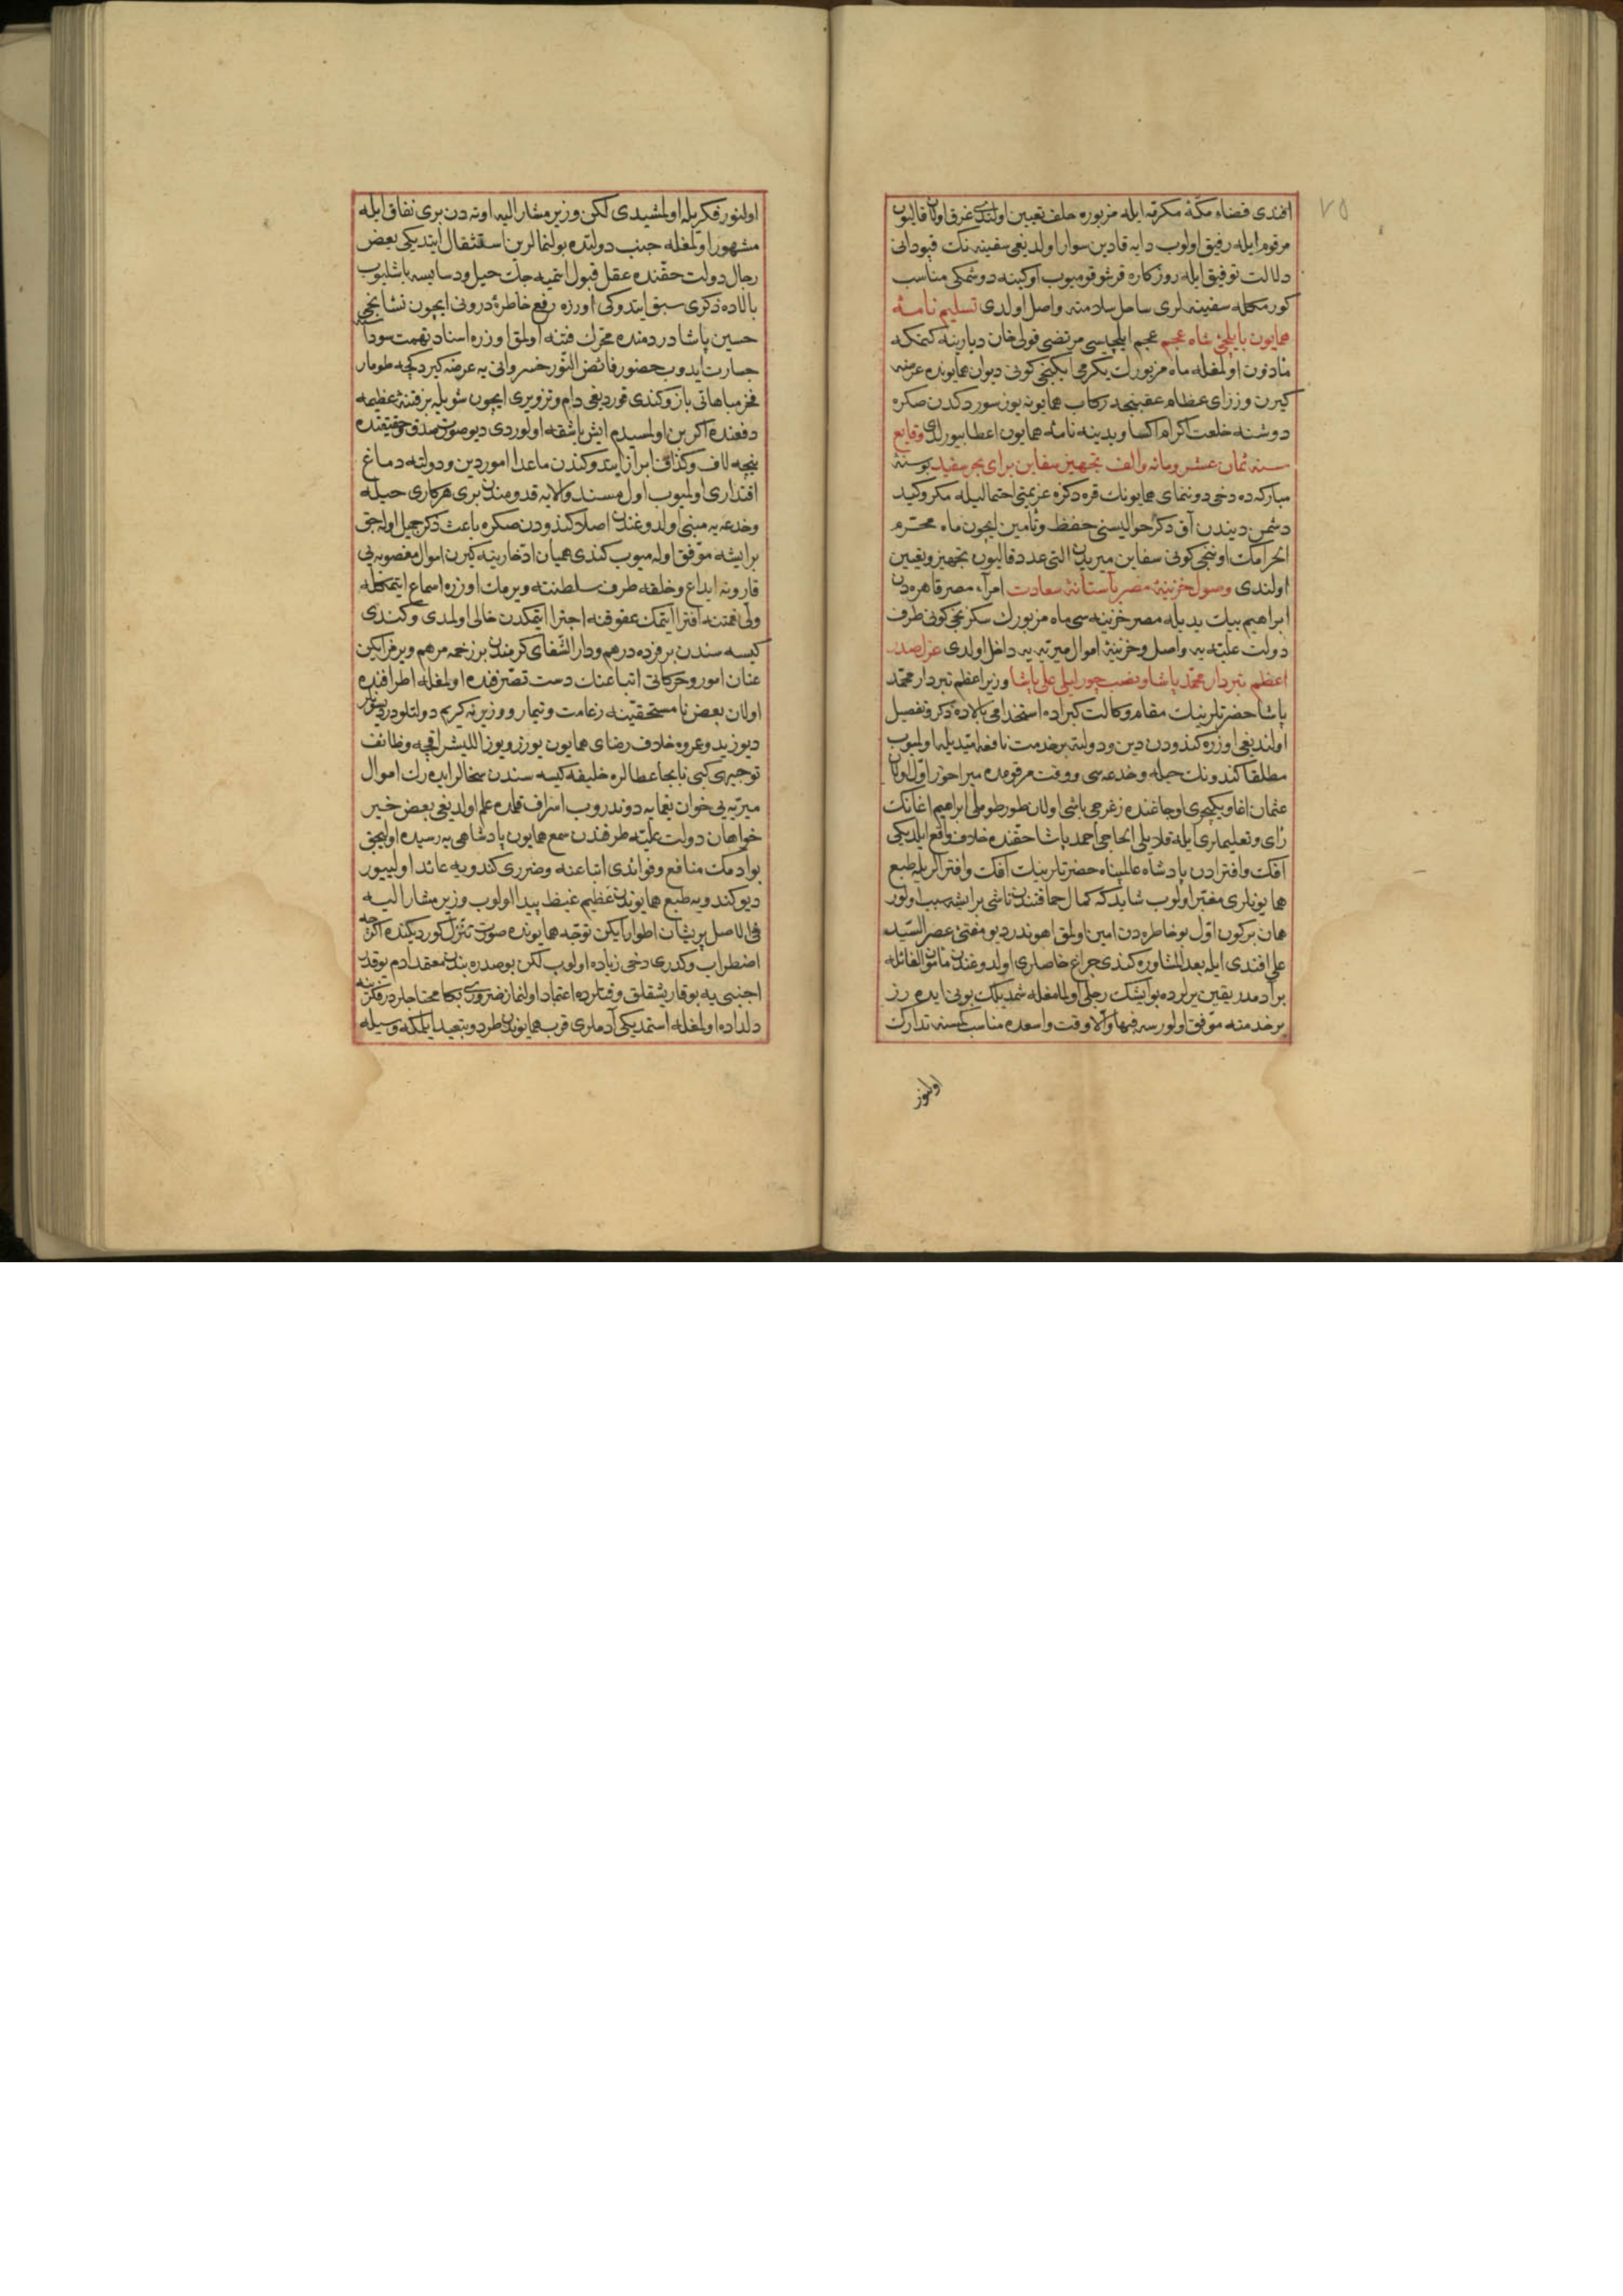 ٧٥
افندی قضاء مکهٔ مکرمه ایله مزبوره خلف تعیین اولندی غرق اولان قالیون
مرقوم ایله رفیق اولوب دایه قادین سوار اولدیغی سفینه نك قپودانی
دلالت توفیق ایله روزکاره قرشو قومیوب اوکینه دوشمکی مناسب
کورمکله سفینه لری ساحل سلامته واصل اولدی تسلیم نامهٔ
همایون بایلچیٔ شاه عجم عجم ایلچیسی مرتضی قولی خان دیارینه کتمکه
مأذون اولمغله ماه مزبورك یکرمی ایکنجی کونی دیوان همایونده عرضه
کیرن وزرای عظام عقبنجه رکاب همایونه یوز سوردکدن صکره
دوشنه خلعت اکرام اکسا ویدینه نامهٔ همایون اعطا بیورلدی وقایع
سنه ثمان عشر ومائه والف تجهیز سفاین برای بحر سفید بو سنهٔ
مبارکه ده دخی دوننمای همایونك قره دکزه عزیمتی احتمالیله مکر وکید
دشمن دیندن آق دکز حوالیسنی حفظ وتأمین ایچون ماه محرم
الحرامك اوننجی کونی سفاین میریدن التی عدد قالیون تجهیز وتعیین
اولندی وصول خزینهٔ مصر بآستانهٔ سعادت امراء مصر قاهره دن
ابراهیم بیك یدیله مصر خزینه سی ماه مزبورك سکزنجی کونی طرف
دولت علیه یه واصل وخزینهٔ اموال میریه یه داخل اولدی عزل صدر
اعظم تبردار محمد پاشا ونصب چورلیلی علی پاشا وزیر اعظم تبردار محمد
پاشا حضرتلرینك مقام وکالت کبراده استخدامی بالاده ذکر وتفصیل
اولندیغی اوزره کندودن دین ودولته بر خدمت نافعه امیدیله اولمیوب
مطلقا کندونك حیله وخدعه سی ووقت مرقومده میراخور اول اولان
عثمان اغا ویکیچری اوجاغنده زغرجی باشی اولان طورطوملی ابراهیم اغانك
رأی وتعلیملری ایله قلایلی الحاجی احمد پاشا حقنده خلاف واقع ایلدیکی
افك وافترادن پادشاه عالمپناه حضرتلرینك افك وافترالریله طبع
همایونلری مغبر اولوب شاید که کمال حماقتندن ناشی بر ایشه سبب اولور
همان بر کون اول بو خاطره دن امین اولمق اهوندر دیو مفتیٔ عصر السید
علی افندی ایله بعد المشاوره کندی چراغ خاصلری اولدوغندن مأمون الغائله
بر آدمدر یقین یرلرده بو ایشك رجلی اولمامغله شمدیلك بونی ایده رز
بر خدمته موفق اولورسه فبها والا وقت واسعده مناسب کمسنه تدارك
اولنور
اولنور فکریله اولمشیدی لکن وزیر مشار الیه اوته دن بری نفاق ایله
مشهور اولمغله جیب دولتده بولنمالرین استثقال ایتدیکی بعض
رجال دولت حقنده عقل قبول ایتمیه جك حیل ودسایسه باشلیوب
بالاده ذکری سبق ایتدوکی اوزره رفع خاطرهٔ درونی ایچون نشانجی
حسین پاشا دردمنده محرك فتنه اولمق اوزره اسناد تهمت سوداسنه
جسارت ایدوب حضور فائض النور خسروانی یه عرضه کیردکجه طومار
فخر مباهاتی باز وکندی قوردیغی دام وتزویری ایچون شویله بر فتنهٔ عظیمه
دفعنده اکر بن اولمسیدم ایش باشقه اولوردی دیو صورت صدق وحقیقتده
نیجه لاف وکذاف ابراز ایتدوکندن ماعدا امور دین ودولته دماغ
اقتداری اولمیوب اول مسند والایه قدومندن بری هر کاری حیله
وخدعه یه مبنی اولدوغندن اصلا کندودن صکره باعث ذکر جمیل اوله جق
بر ایشه موفق اوله میوب کندی همیان ادخارینه کیرن اموال مغصوبه یی
قارونه ایداع وخلقه طرف سلطنته ویرمك اوزره اسماع ایتمکله
ولی نعمتنه افترا ایتمك عقوقنه اجترا ایتمکدن خالی اولمدی وکندی
کیسه سندن بر فرده درهم ودار الشفای کرمندن بر زخمه مرهم ویرمز ایکن
عنان امور وحرکاتی اتباعنك دست تصرفنده اولمغله اطرافنده
اولان بعض نا مستحقینه زعامت وتیمار ووزیر نه کریم دولتلودر دیسونلر
دیو زید وعمروه خلاف رضای همایون یوزر ویوز اللیشر اقچه وظائف
توجیهی کبی نابجا عطالره خلیفه کیسه سندن سخالر ایده رك اموال
میریه یی خوان یغمایه دوندروب اسراف قلمده علم اولدیغی بعض خیر
خواهان دولت علیه طرفندن سمع همایون پادشاهی یه رسیده اولیجق
بو ادمك منافع وفوائدی اتباعنه وضرری کندویه عائد اولییور
دیو کندویه طبع همایوندن عظیم غیظ پیدا اولوب وزیر مشار الیه
فی الاصل پریشان اطوار ایکن توجه همایونده صورت تنزل کوردیکنده اکرچه
اضطراب وکدری دخی زیاده اولوب لکن بو صدره بندن معقد ادم یوقدر
اجنبی یه بو قاریشقلق وقتلرده اعتماد اولنماز ضروری بکا محتاجلردر فکرینه
دلداده اولمغله استمدیکی آدملری قرب همایوندن طرد وتبعید ایلمکه وسیله